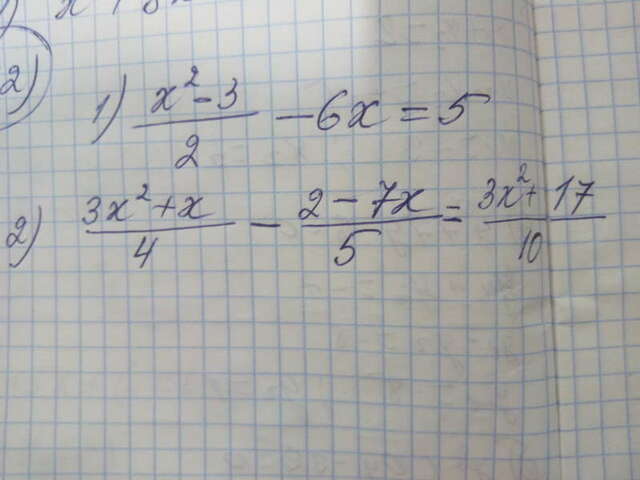 2)
1) (x² - 3)/2 - 6x = 5
2) (3x² + x)/4 - (2 - 7x)/5 = (3x² + 17)/10